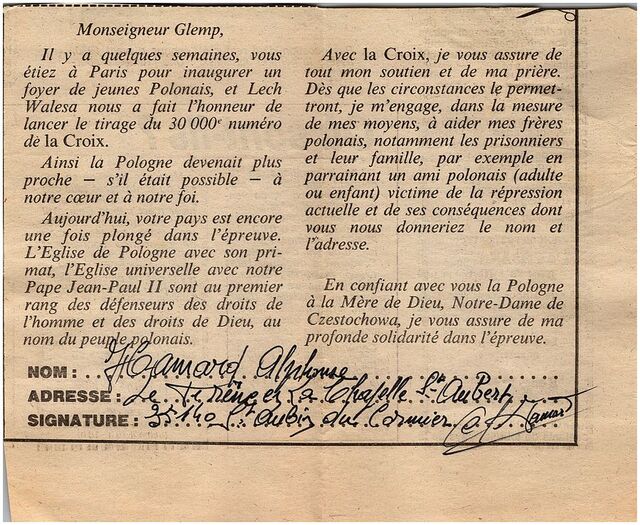 Monseigneur Glemp,
Il y a quelques semaines, vous
étiez à Paris pour inaugurer un
foyer de jeunes Polonais, et Lech
Walesa nous a fait l'honneur de
lancer le tirage du 30 000e numéro
de la Croix.
Ainsi la Pologne devenait plus
proche — s'il était possible — à
notre cœur et à notre foi.
Aujourd'hui, votre pays est encore
une fois plongé dans l'épreuve.
L'Eglise de Pologne avec son pri-
mat, l'Eglise universelle avec notre
Pape Jean-Paul II sont au premier
rang des défenseurs des droits de
l'homme et des droits de Dieu, au
nom du peuple polonais.
Avec la Croix, je vous assure de
tout mon soutien et de ma prière.
Dès que les circonstances le permet-
tront, je m'engage, dans la mesure
de mes moyens, à aider mes frères
polonais, notamment les prisonniers
et leur famille, par exemple en
parrainant un ami polonais (adulte
ou enfant) victime de la répression
actuelle et de ses conséquences dont
vous nous donneriez le nom et
l'adresse.
En confiant avec vous la Pologne
à la Mère de Dieu, Notre-Dame de
Czestochowa, je vous assure de ma
profonde solidarité dans l'épreuve.
NOM : Hamard Alphonse
ADRESSE : Le La Chapelle St Aubert
SIGNATURE : 35140 St Aubin du Cormier Hamard